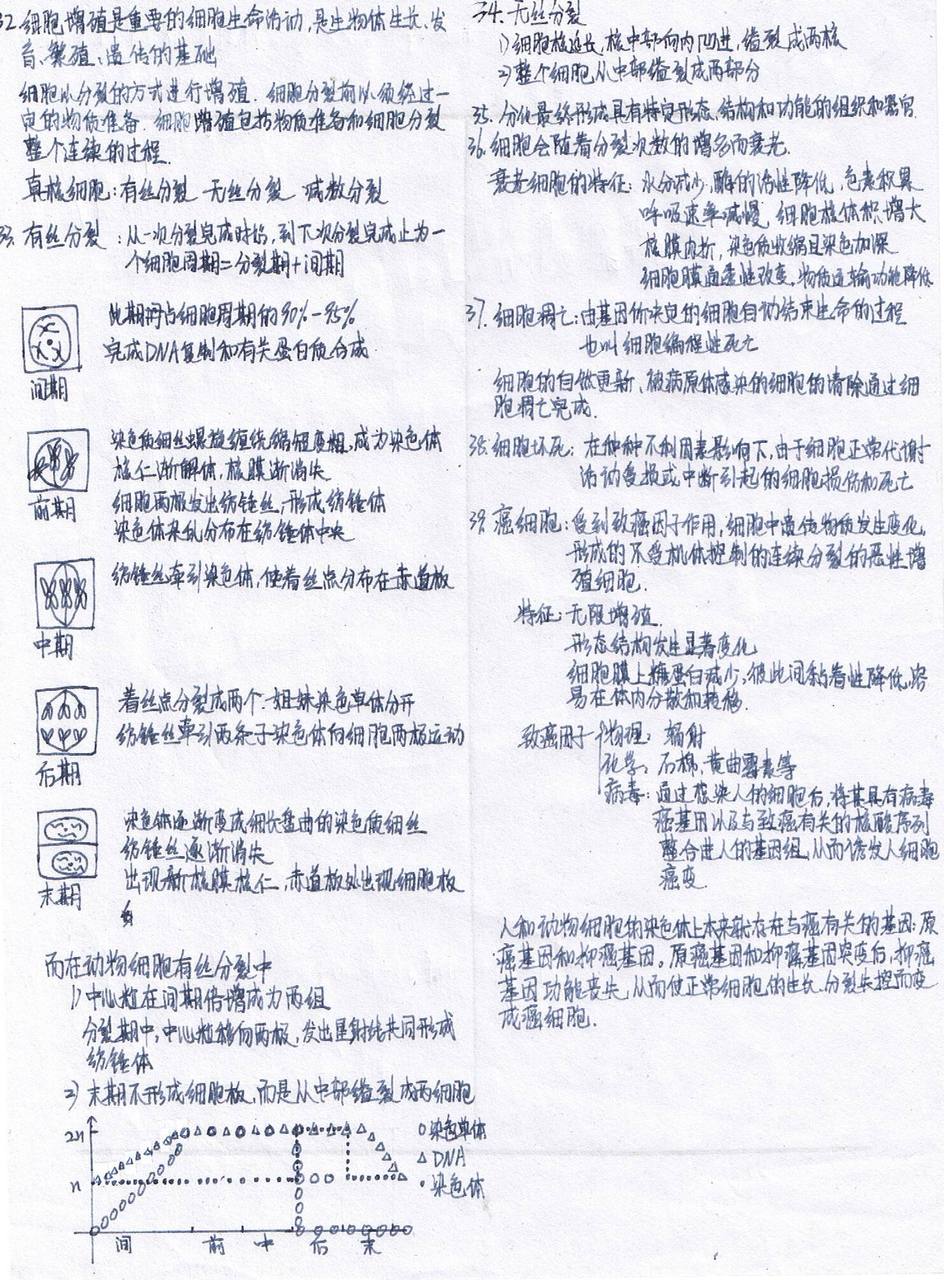 32. 细胞增殖是重要的细胞生命活动,是生物体生长、发
育、繁殖、遗传的基础
细胞以分裂的方式进行增殖.细胞分裂前必须经过一
定的物质准备.细胞增殖包括物质准备和细胞分裂
整个连续的过程.
真核细胞:有丝分裂 无丝分裂 减数分裂
33. 有丝分裂:从一次分裂完成时始,到下次分裂完成止为一
个细胞周期=分裂期+间期
此期所占细胞周期的90%-95%
完成DNA复制和有关蛋白质合成.
间期
染色质细丝螺旋缠绕,缩短变粗,成为染色体
核仁渐解体,核膜渐消失
细胞两极发出纺锤丝,形成纺锤体
染色体杂乱分布在纺锤体中央
前期
纺锤丝牵引染色体,使着丝点分布在赤道板
中期
着丝点分裂成两个.姐妹染色单体分开
纺锤丝牵引两条子染色体向细胞两极运动
后期
染色体逐渐变成细长盘曲的染色质细丝
纺锤丝逐渐消失
出现新核膜核仁,赤道板处出现细胞板
末期
而在动物细胞有丝分裂中
1) 中心粒在间期倍增成为两组
分裂期中,中心粒移向两极,发出星射线共同形成
纺锤体
2) 末期不形成细胞板,而是从中部缢裂成两细胞
2n
n
o染色单体
△DNA
·染色体
间 前 中 后 末
34. 无丝分裂
1) 细胞核延长,核中部向内凹进,缢裂成两核
2) 整个细胞从中部缢裂成两部分
35. 分化最终形成具有特定形态、结构和功能的组织和器官.
36. 细胞会随着分裂次数的增多而衰老.
衰老细胞的特征:水分减少,酶的活性降低,色素积累
呼吸速率减慢,细胞核体积增大
核膜内折,染色质收缩且染色加深
细胞膜通透性改变,物质运输功能降低
37. 细胞凋亡:由基因所决定的细胞自动结束生命的过程
也叫细胞编程性死亡
细胞的自然更新、被病原体感染的细胞的清除通过细
胞凋亡完成.
38. 细胞坏死:在种种不利因素影响下,由于细胞正常代谢
活动受损或中断引起的细胞损伤和死亡
39. 癌细胞:受到致癌因子作用,细胞中遗传物质发生变化,
形成的不受机体控制的连续分裂的恶性增
殖细胞.
特征:无限增殖.
形态结构发生显著变化
细胞膜上糖蛋白减少,彼此间黏着性降低,容
易在体内分散和转移.
致癌因子 物理:辐射
化学:石棉,黄曲霉素等
病毒:通过感染人的细胞后,将其具有病毒
癌基因以及与致癌有关的核酸序列
整合进人的基因组,从而诱发人细胞
癌变
人和动物细胞的染色体上本来就存在与癌有关的基因:原
癌基因和抑癌基因.原癌基因和抑癌基因突变后,抑癌
基因功能丧失,从而使正常细胞的生长.分裂失控而变
成癌细胞.